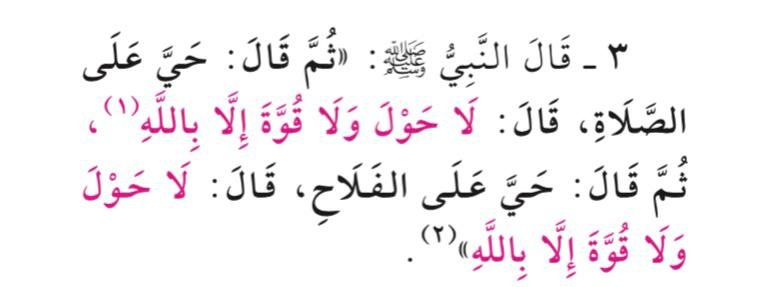 ٣ ـ قَالَ النَّبِيُّ ﷺ: «ثُمَّ قَالَ: حَيَّ عَلَى
الصَّلَاةِ، قَالَ: لَا حَوْلَ وَلَا قُوَّةَ إِلَّا بِاللَّهِ(١)،
ثُمَّ قَالَ: حَيَّ عَلَى الفَلَاحِ، قَالَ: لَا حَوْلَ
وَلَا قُوَّةَ إِلَّا بِاللَّهِ»(٢).